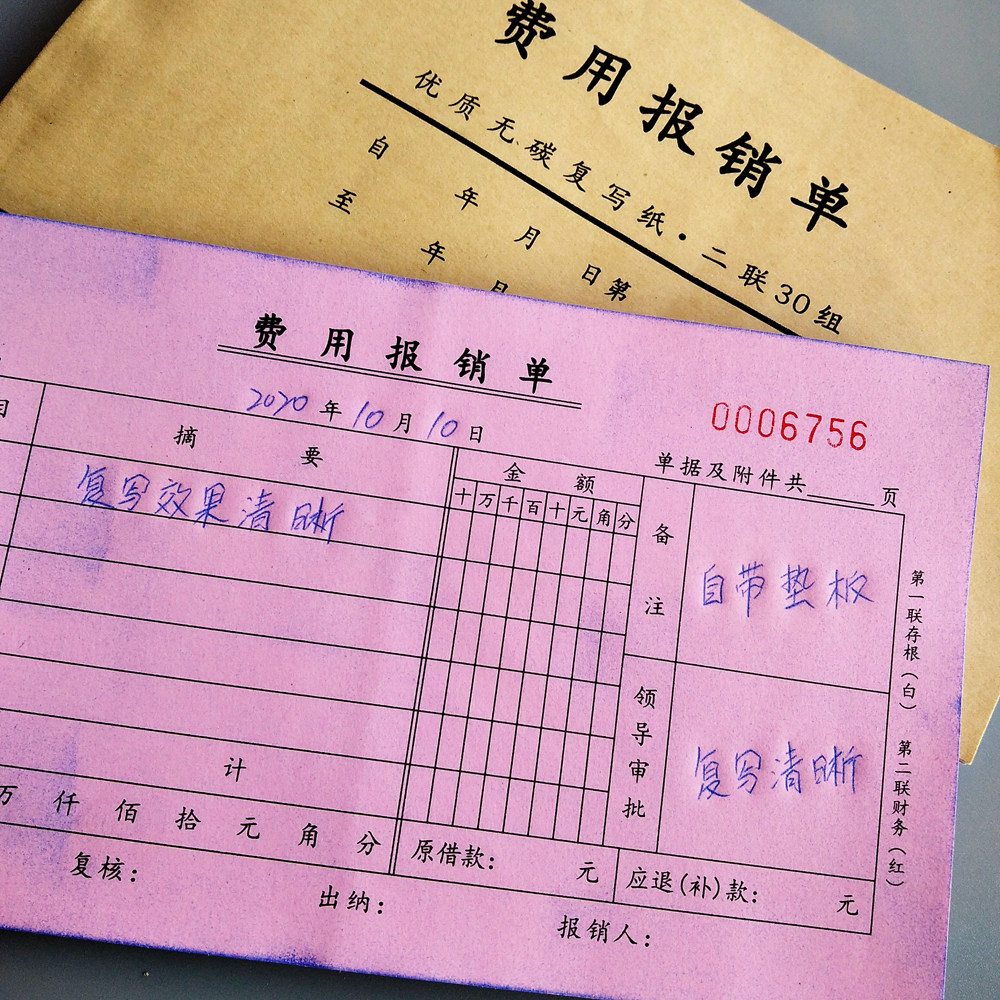 费用报销单
优质无碳复写纸·二联30组
自 年 月 日第
至 年 月
费用报销单
2020年10月10日
0006756
单据及附件共 页
日
摘要
金额
十万千百十元角分
备注
复写效果清晰
自带垫板
领导审批
复写清晰
计
万仟佰拾元角分
原借款: 元
应退(补)款: 元
复核:
出纳:
报销人:
第一联存根(白)
第二联财务(红)